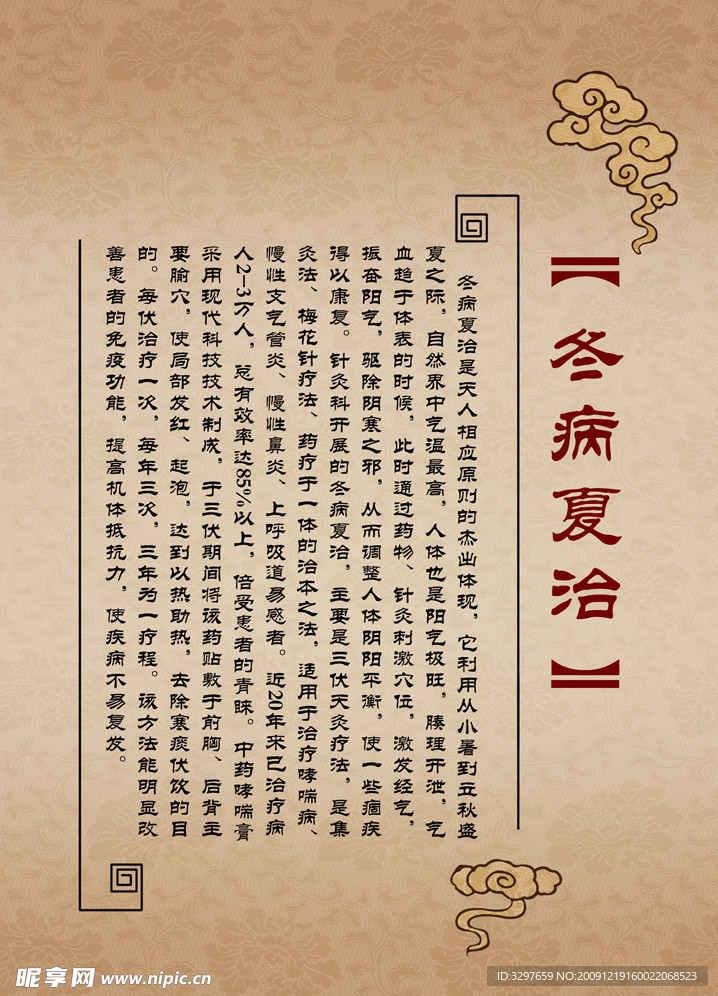 【冬病夏治】
冬病夏治是天人相应原则的杰出体现，它利用从小暑到立秋盛
夏之际，自然界中气温最高，人体也是阳气极旺，腠理开泄，气
血趋于体表的时候，此时通过药物、针灸刺激穴位，激发经气，
振奋阳气，驱除阴寒之邪，从而调整人体阴阳平衡，使一些痼疾
得以康复。针灸科开展的冬病夏治，主要是三伏天灸疗法，是集
灸法、梅花针疗法、药疗于一体的治本之法，适用于治疗哮喘病、
慢性支气管炎、慢性鼻炎、上呼吸道易感者。近20年来已治疗病
人2—3万人，总有效率达85%以上，倍受患者的青睐。中药哮喘膏
采用现代科技技术制成，于三伏期间将该药贴敷于前胸、后背主
要腧穴，使局部发红、起泡，达到以热助热，去除寒痰伏饮的目
的。每伏治疗一次，每年三次，三年为一疗程。该方法能明显改
善患者的免疫功能，提高机体抵抗力，使疾病不易复发。
昵享网 www.nipic.cn
ID:3297659 NO:20091219160022068523